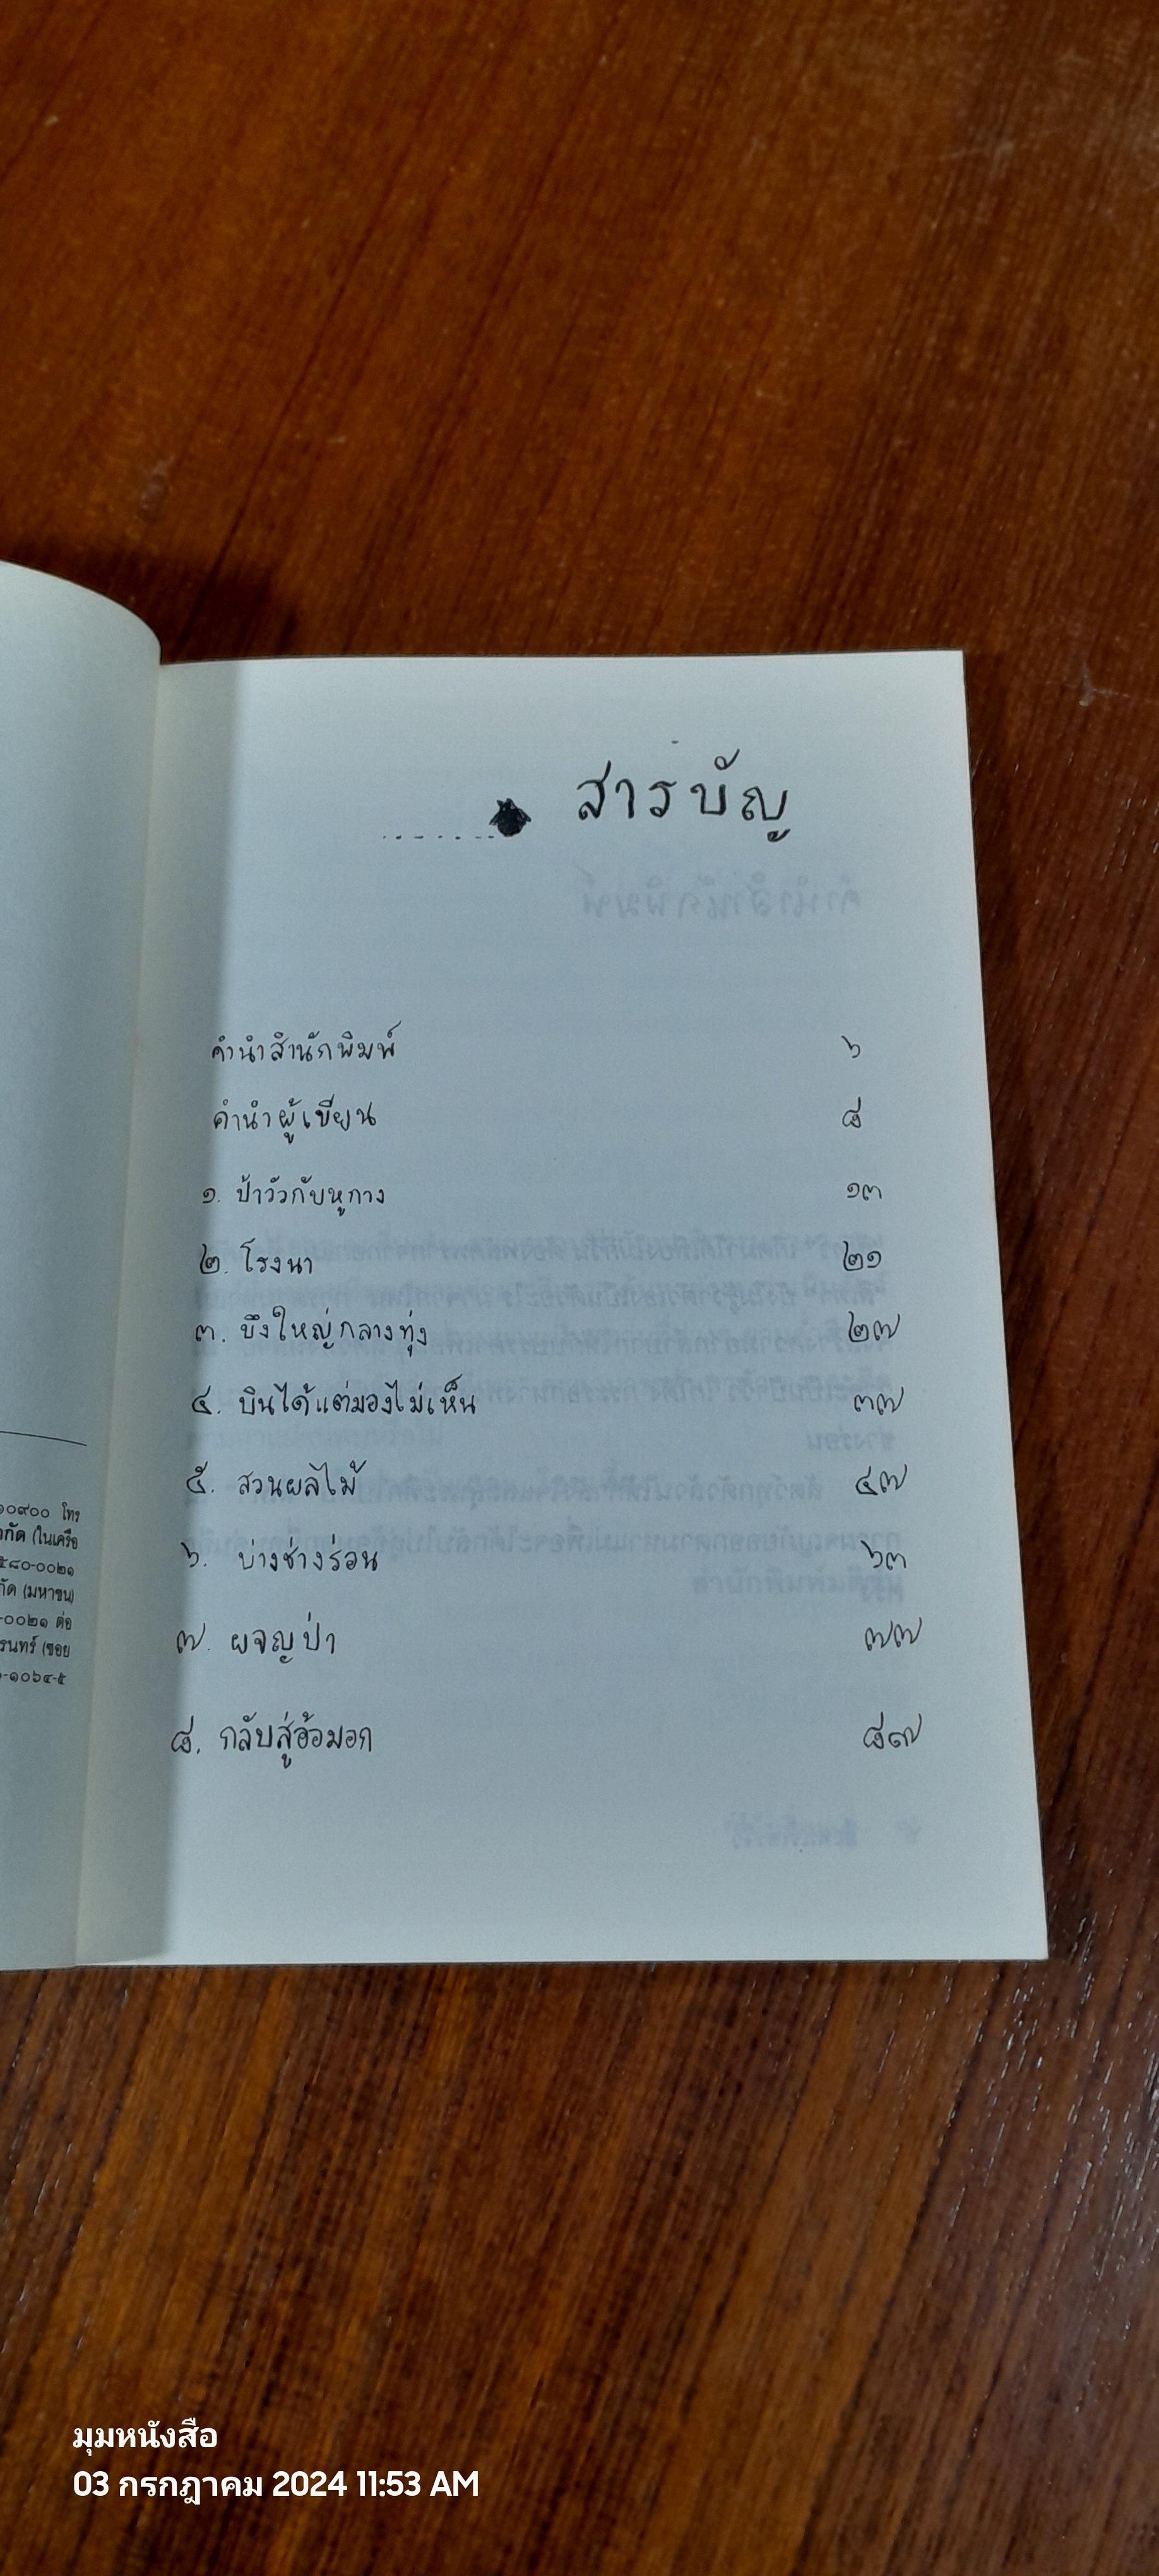 สารบัญ
คำนำสำนักพิมพ์ ๖
คำนำผู้เขียน ๘
๑. ป้าวัวกับหูกาง ๑๓
๒. โรงนา ๒๑
๓. บึงใหญ่กลางทุ่ง ๒๗
๔. บินได้แต่มองไม่เห็น ๓๗
๕. สวนผลไม้ ๔๗
๖. บ่างช่างร่อน ๖๓
๗. ผจญป่า ๗๗
๘. กลับสู่อ้อมอก ๘๗
๑๐๙๐๐ โทร
กัด (ในเครือ
๕๘๐-๐๐๒๑
กัด (มหาชน)
-๐๐๒๑ ต่อ
รินทร์ (ซอย
-๑๐๖๔-๕
มุมหนังสือ
03 กรกฎาคม 2024 11:53 AM